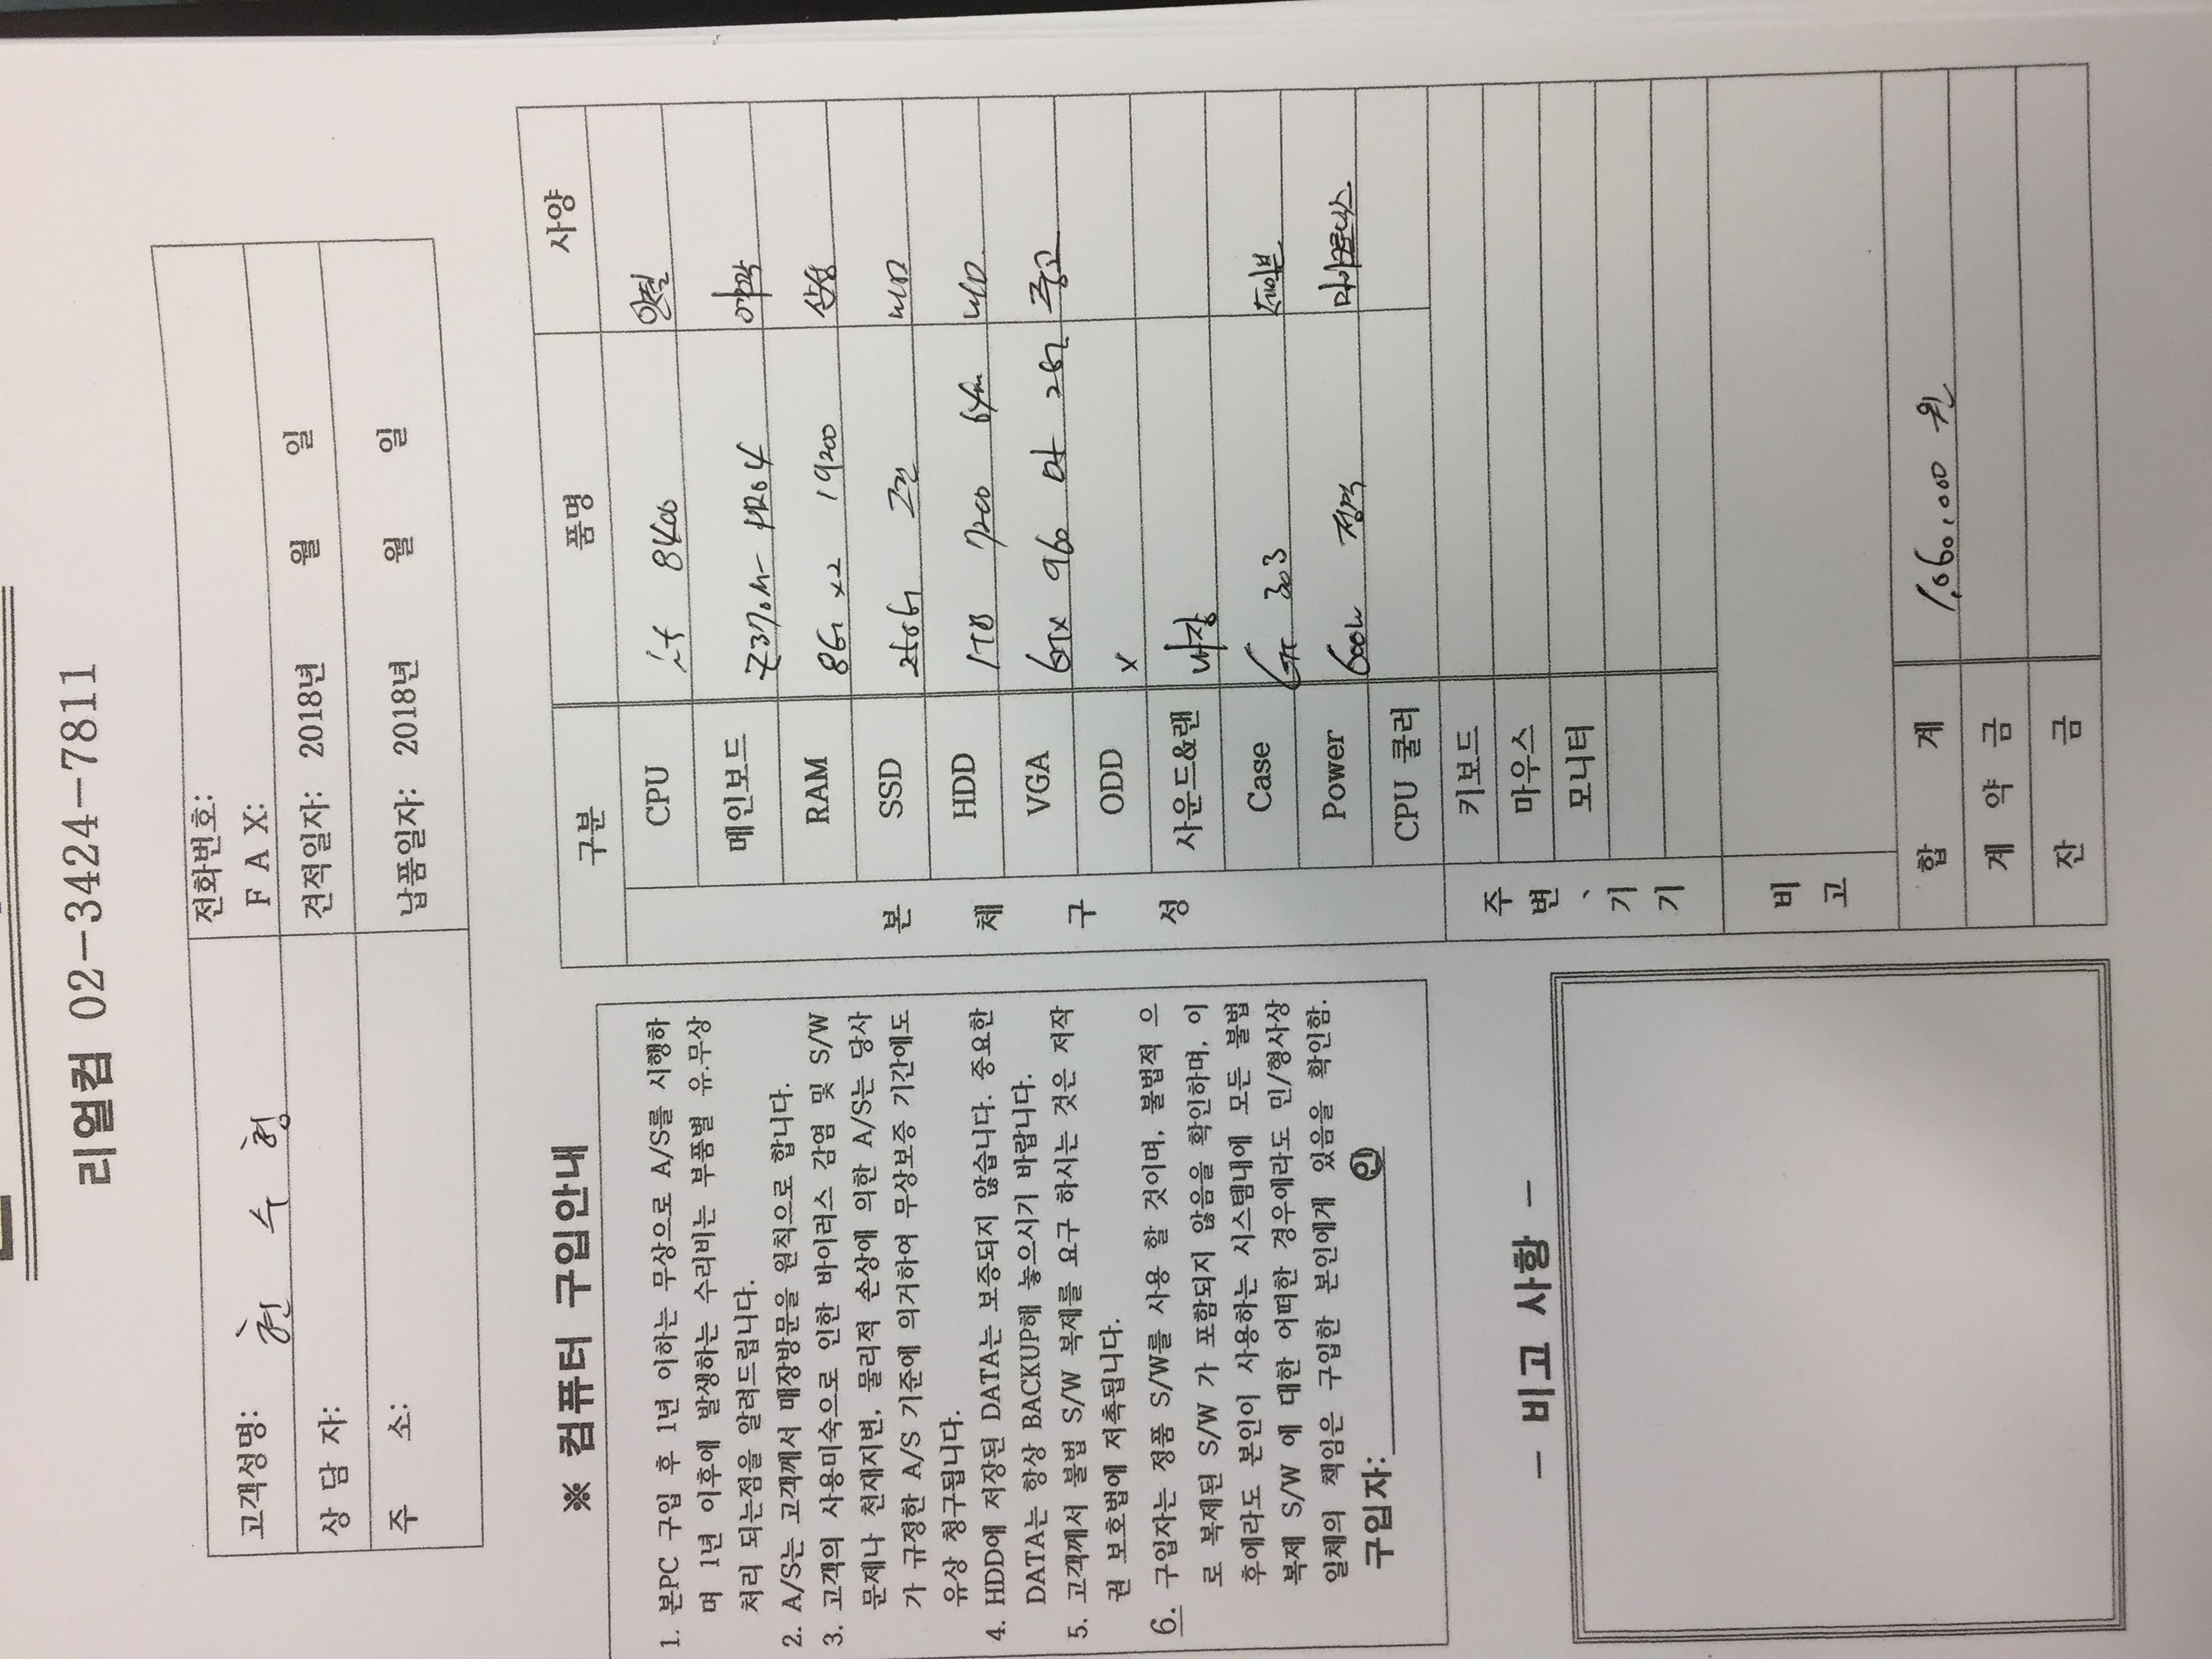 리얼컴 02-3424-7811
고객성명: 천 수 형
전화번호:
F A X:
상 담 자:
견적일자: 2018년 월 일
주 소:
납품일자: 2018년 월 일
※ 컴퓨터 구입안내
1. 본PC 구입 후 1년 이하는 무상으로 A/S를 시행하
며 1년 이후에 발생하는 수리비는 부품별 유.무상
처리 되는점을 알려드립니다.
2. A/S는 고객께서 매장방문을 원칙으로 합니다.
3. 고객의 사용미숙으로 인한 바이러스 감염 및 S/W
문제나 천재지변, 물리적 손상에 의한 A/S는 당사
가 규정한 A/S 기준에 의거하여 무상보증 기간에도
유상 청구됩니다.
4. HDD에 저장된 DATA는 보증되지 않습니다. 중요한
DATA는 항상 BACKUP해 놓으시기 바랍니다.
5. 고객께서 불법 S/W 복제를 요구 하시는 것은 저작
권 보호법에 저촉됩니다.
6. 구입자는 정품 S/W를 사용 할 것이며, 불법적 으
로 복제된 S/W 가 포함되지 않음을 확인하며, 이
후에라도 본인이 사용하는 시스템내에 모든 불법
복제 S/W 에 대한 어떠한 경우에라도 민/형사상
일체의 책임은 구입한 본인에게 있음을 확인함.
구입자: ㉑인
- 비고 사항 -
구분 품명 사양
본 체 구 성
CPU i5 8400 인텔
메인보드 Z370M PRO4 애즈락
RAM 8G x2 19200 삼성
SSD 256G WD
HDD 1TB 7200 64M WD
VGA GTX 960 2G 중고
ODD x
사운드&랜 내장
Case 303
Power 600W 정격 마이크로닉스
CPU 쿨러
주 변 기 기
키보드
마우스
모니터
비 고
합 계 1,060,000 원
계 약 금
잔 금